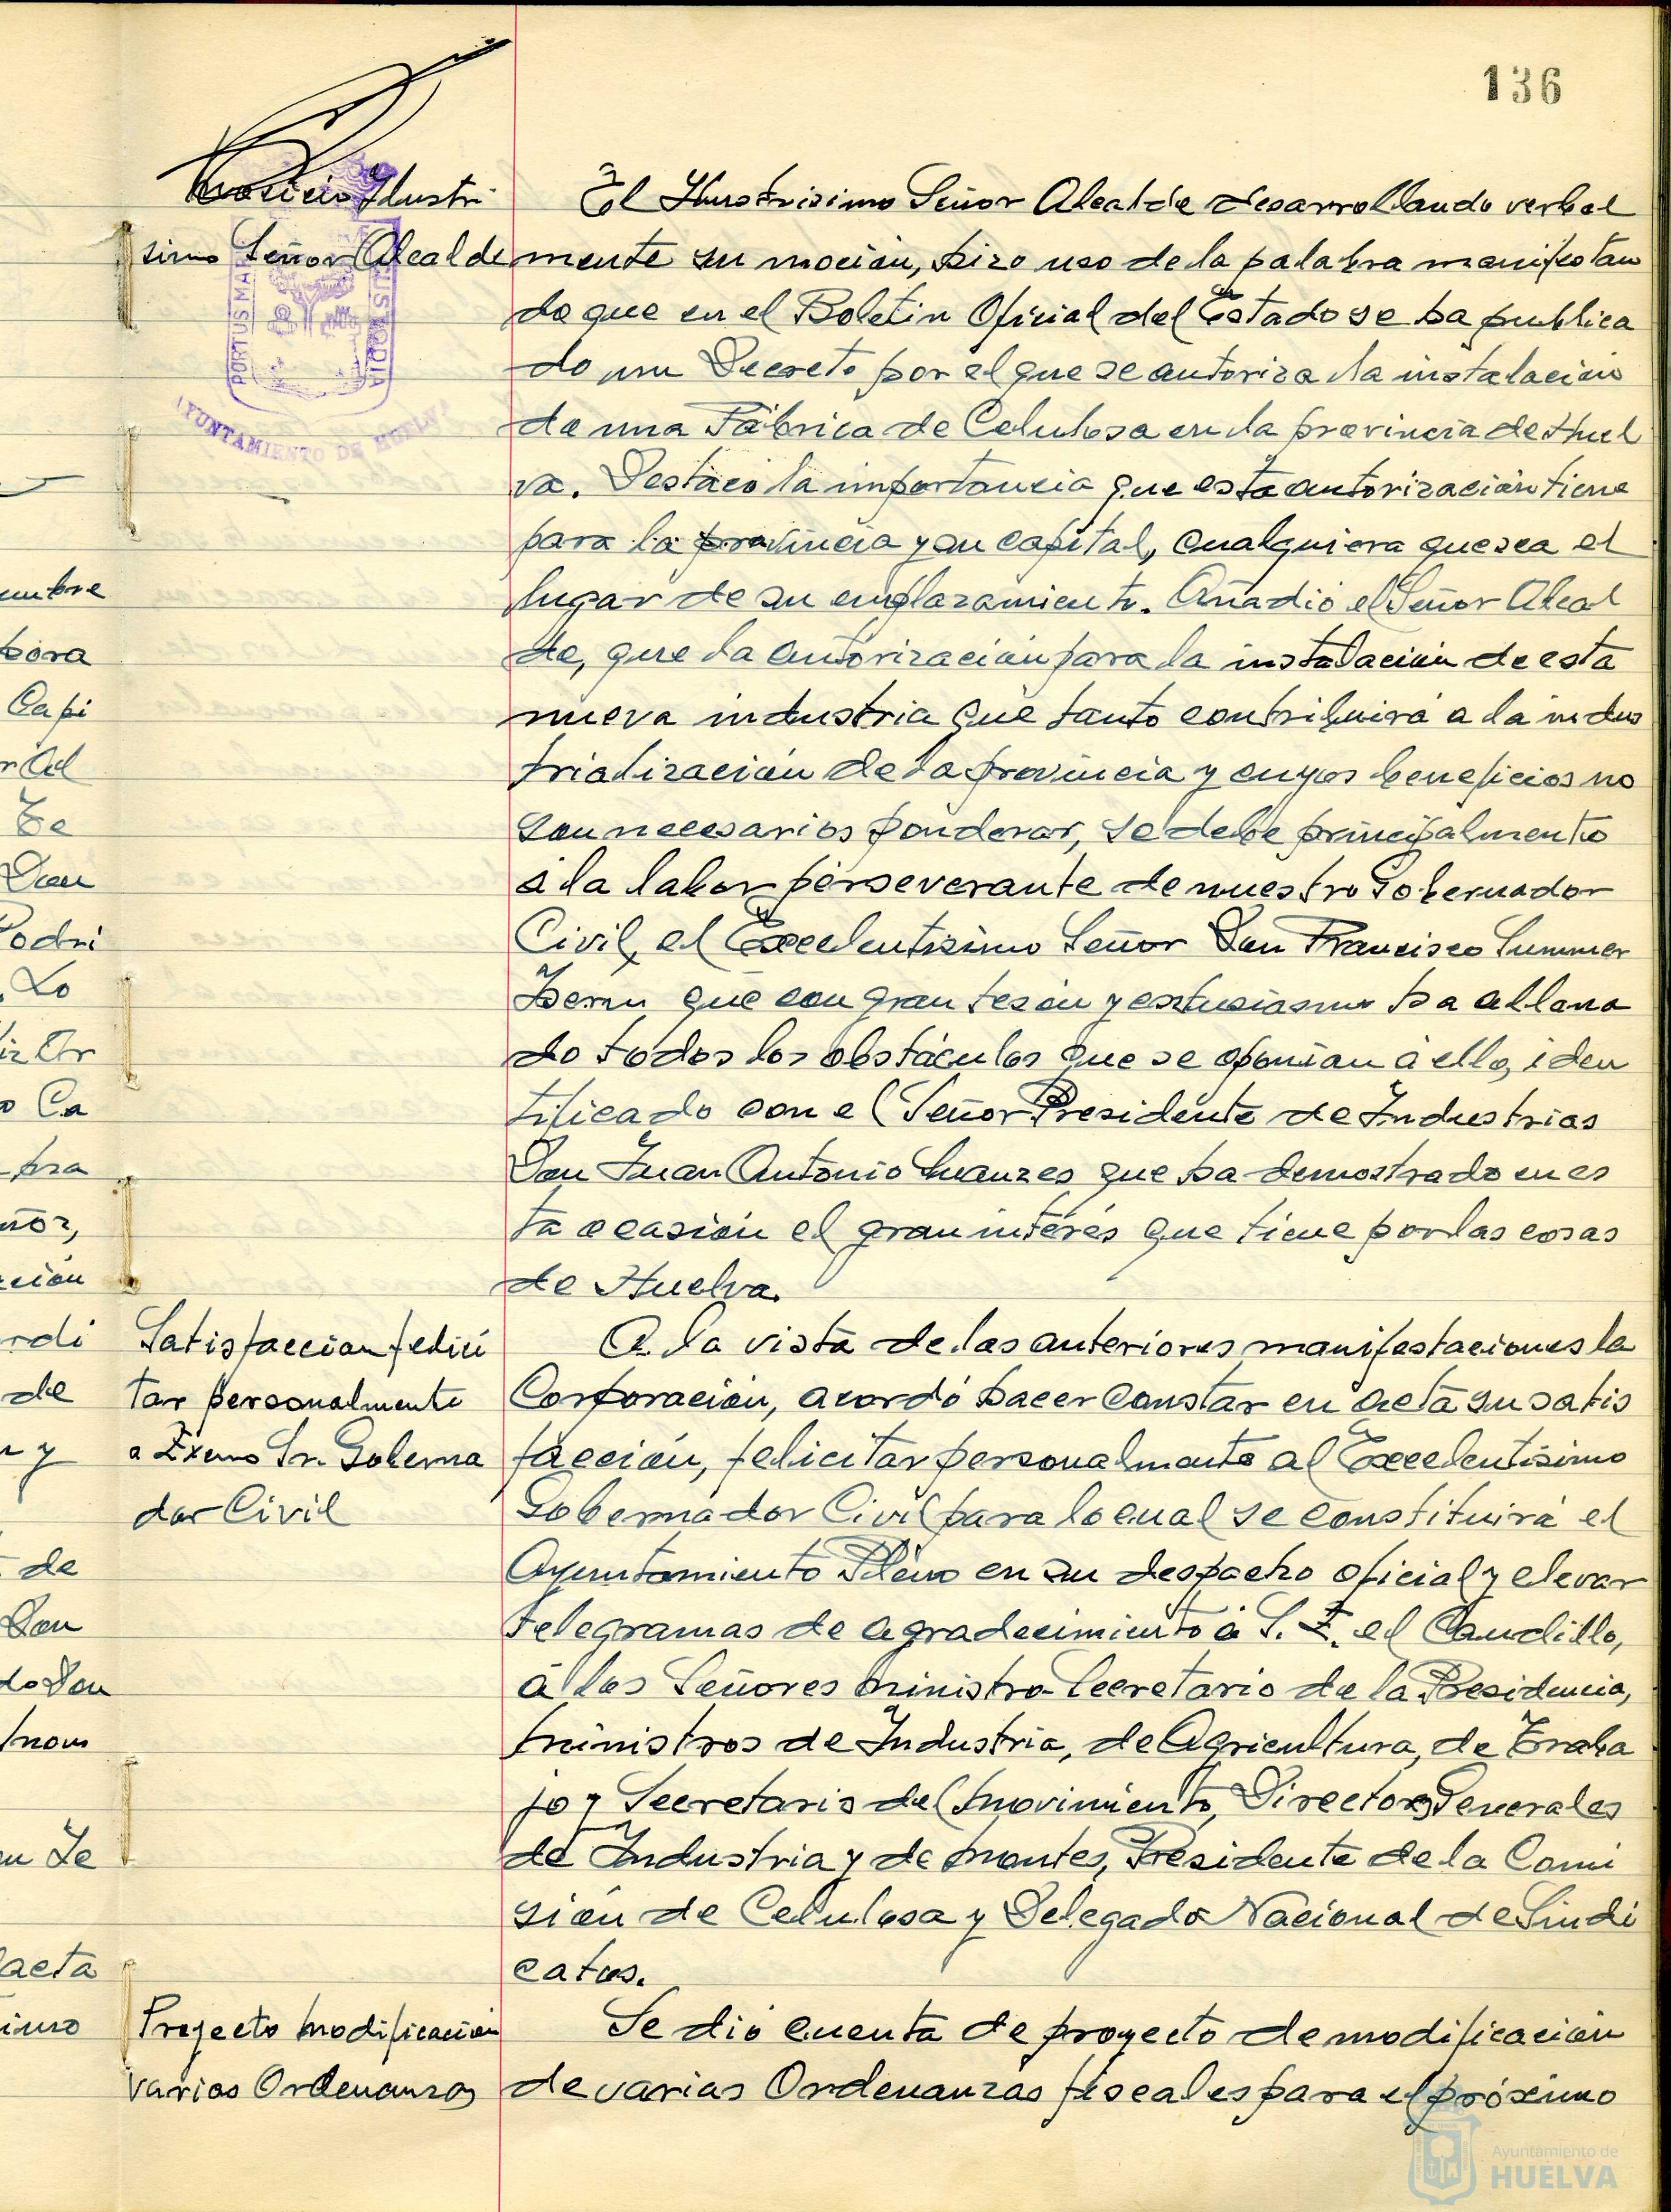 136
Moción Ilustrí
simo Señor Alcalde
PORTUS MARIS
CUSTODIA
AYUNTAMIENTO DE HUELVA
El Ilustrisimo Señor Alcalde desarrollando verbal
mente su moción, hizo uso de la palabra manifestan
do que en el Boletin Oficial del Estado se ha publica
do un Decreto por el que se autoriza la instalación
de una Fábrica de Celulosa en la provincia de Huel
va. Destacó la importancia que esta autorización tiene
para la provincia y su capital, cualquiera que sea el
lugar de su emplazamiento. Añadió el Señor Alcal
de, que la autorización para la instalación de esta
nueva industria que tanto contribuirá a la indus
trialización de la provincia y cuyos beneficios no
son necesarios ponderar, se debe principalmente
á la labor perseverante de nuestro Gobernador
Civil, el Excelentisimo Señor Don Francisco Summer
que con gran tesón y entusiasmo ha allana
do todos los obstáculos que se oponian á ello, iden
tificado con el Señor Presidente de Industrias
Don Juan Antonio Suanzes que ha demostrado en es
ta ocasión el gran interés que tiene por las cosas
de Huelva.
Satisfaccion felici
tar personalmente
a Excmo Sr. Goberna
dor Civil
A la vista de las anteriores manifestaciones la
Corporación, acordó hacer constar en acta su satis
facción, felicitar personalmente al Excelentísimo
Gobernador Civil para lo cual se constituirá el
Ayuntamiento Pleno en su despacho oficial y elevar
telegramas de agradecimiento á S. E. el Caudillo,
á los Señores Ministro-Secretario de la Presidencia,
Ministros de Industria, de Agricultura, de Traba
jo y Secretario del Movimiento, Directores Generales
de Industria y de Montes, Presidente de la Comi
sión de Celulosa y Delegado Nacional de Sindi
catos.
Proyecto modificación
varias Ordenanzas
Se dió cuenta de proyecto de modificación
de varias Ordenanzas fiscales para el próximo
umbre
hora
Capi
r Al
Te
Don
Rodri
Lo
Ca
ñoz,
ción
rdi
de
y
de
Don
do Don
Te
acta
imo
Ayuntamiento de
HUELVA